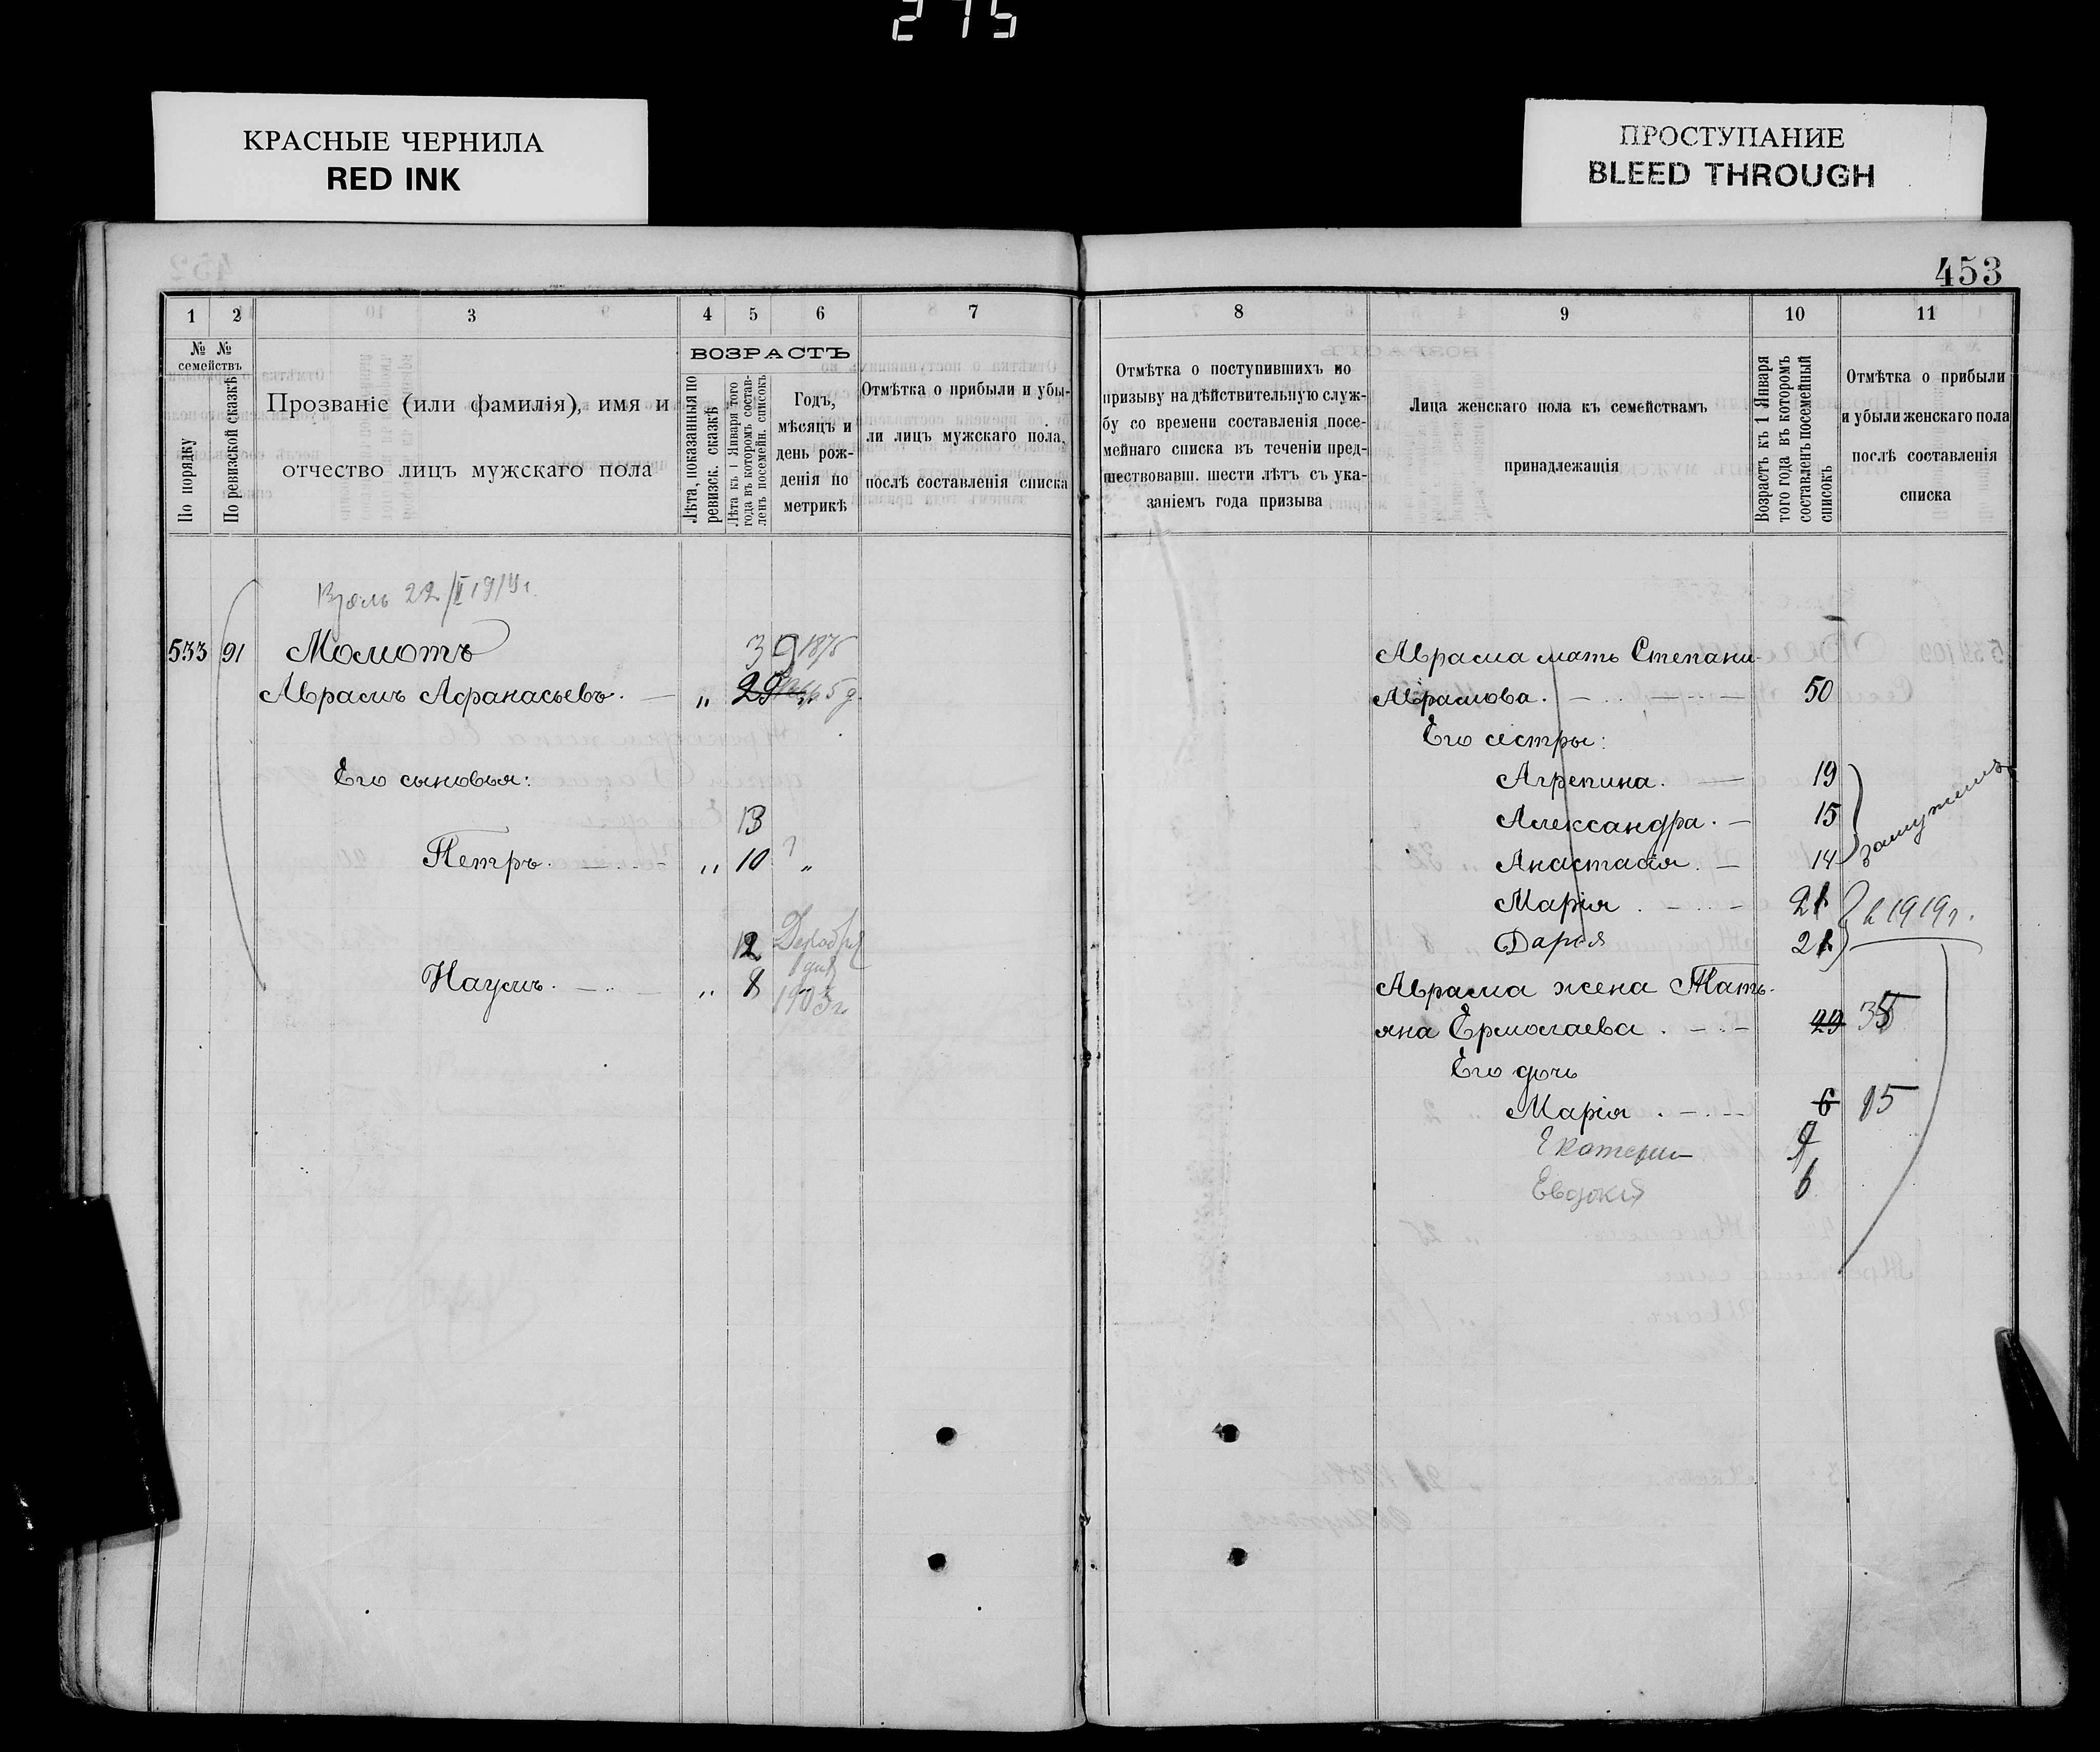 275
КРАСНЫЕ ЧЕРНИЛА
RED INK
ПРОСТУПАНИЕ
BLEED THROUGH
453
1 2 3 4 5 6 7
№ № семействъ
По порядку
По ревизской сказкѣ
Прозваніе (или фамилія), имя и
отчество лицъ мужскаго пола
ВОЗРАСТЪ
Лѣта, показанныя по
ревизск. сказкѣ
Лѣта къ 1 Января того
года въ которомъ состав-
ленъ посемейн. списокъ
Годъ,
мѣсяцъ и
день рож-
денія по
метрикѣ
Отмѣтка о прибыли и убы-
ли лицъ мужскаго пола,
послѣ составленія списка
8 9 10 11
Отмѣтка о поступившихъ по
призыву на дѣйствительную служ-
бу со времени составленія посе-
мейнаго списка въ теченіи пред-
шествовавш. шести лѣтъ съ ука-
заніемъ года призыва
Лица женскаго пола къ семействамъ
принадлежащія
Возрастъ къ 1 Января
того года въ которомъ
составленъ посемейный
списокъ
Отмѣтка о прибыли
и убыли женскаго пола
послѣ составленія
списка
22/II 1914 г.
533 91 Момотъ 39 1875
Абрамъ Афанасьевъ. — „ 29
Его сыновья:
13
Петръ. „ 10 „
12 Декабря
Наумъ. „ 8
1903 г.
Абрама мать Степани-
Абрамова. 50
Его сестры:
Агрепина. — 19
Александра. — 15
Анастасія. — 14
замужемъ
Марія. 21
Дарья 21
1919 г.
Абрама жена Тать-
яна Ермолаева. 29 35
Его дочь
Марія. 6 15
Екатерин 9
Евдокія 6